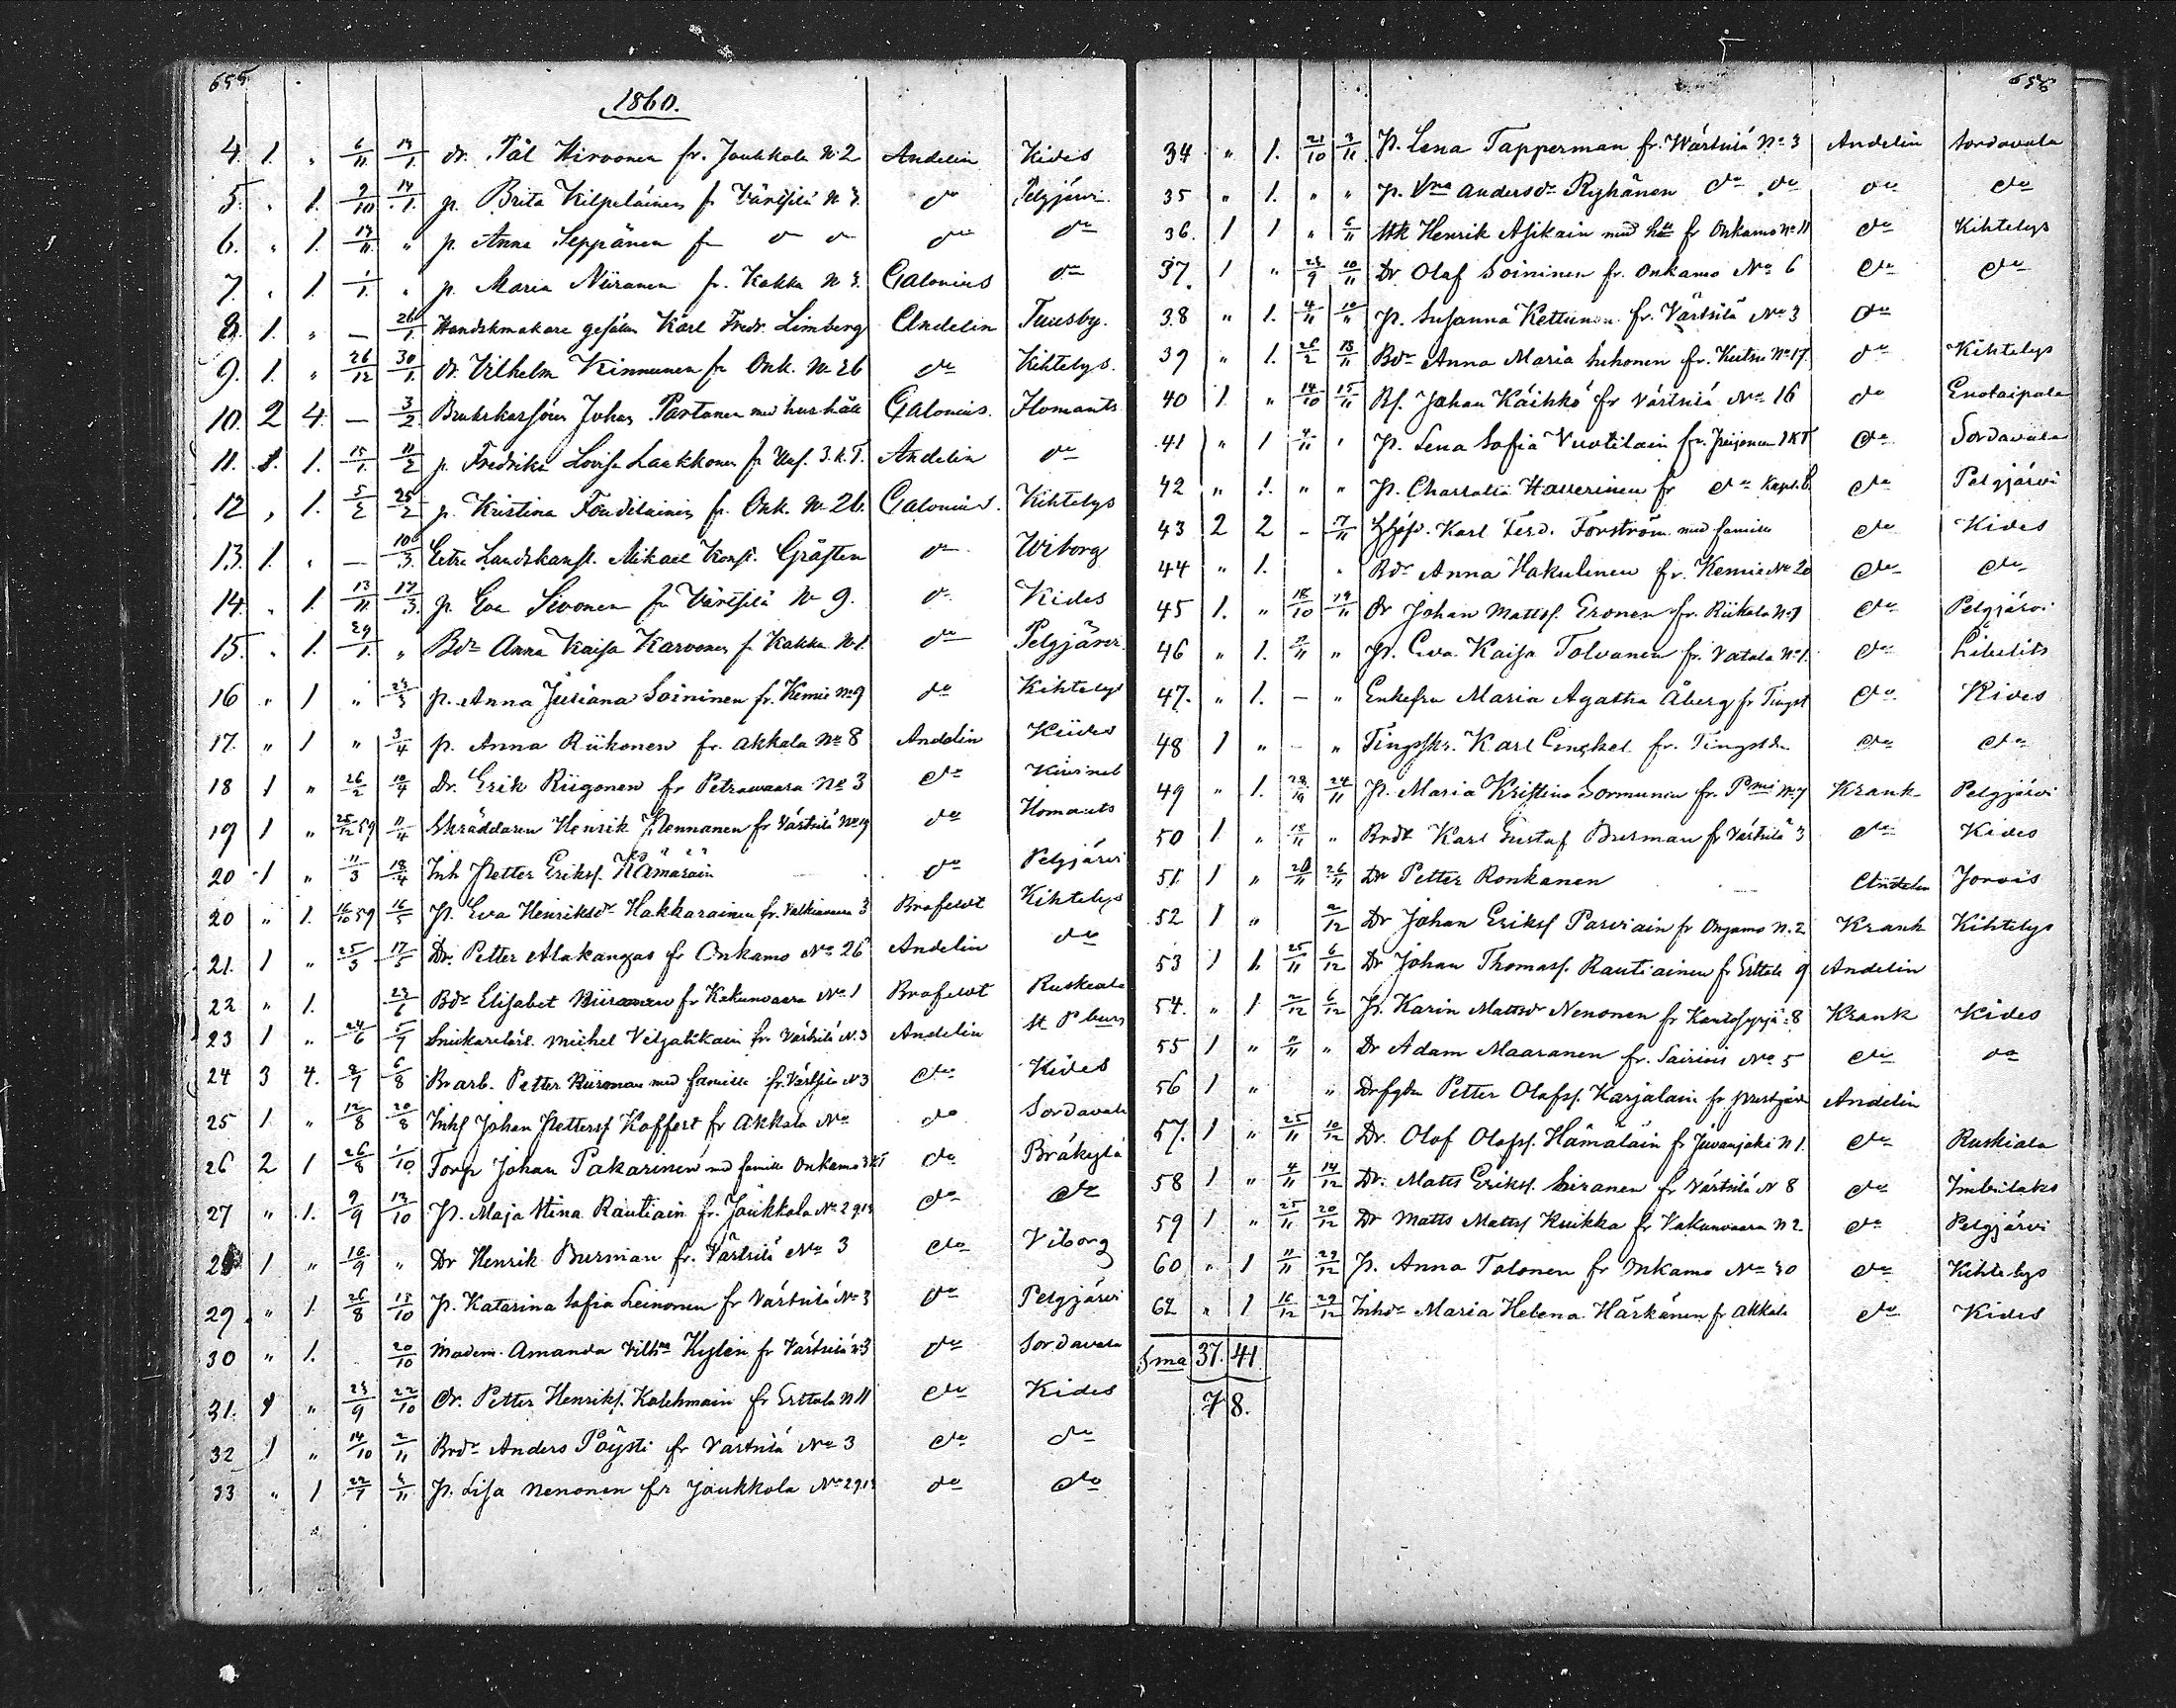 655
1860.
4. 1. " 6/11 14/1 dr. Pål Hirvonen fr. Joukkola N. 2 Andelin Kides
5. " 1. 9/10 14/1 p. Brita Kilpeläinen fr Värtsilä N 3. do Pelgjärvi
6. " 1. 14/11 " p. Anna Seppänen fr do do do do
7. " 1. 1/1 " p. Maria Niiranen fr. Kakka N 3. Calonius do
8. 1. " — 26/1 Handskmakare gesällen Karl Fredr. Limberg Andelin Tuusby.
9. 1. " 26/12 30/1 dr. Vilhelm Kinnunen fr Onk. No 26 do Kihtelys.
10. 2 4. — 3/2 Johan Partanen med hushåll Calonius. Ilomants
11. 1. 15/1 11/2 p. Fredrika Lovisa Laakkonen fr 3. K. T. Andelin do
12 " 1. 5/2 25/2 p. Kristina fr. Onk. No 26. Calonius. Kihtelys
13. 1. " — 10/3 Extra Landskansl. Mikael Konst. Gråsten do Wiborg
14. " 1. 13/11 17/3 p. Eva Sivonen fr Värtsilä No 9. do Kides
15. " 1. 29/1 " Bdr Anna Kaisa Karvonen fr Kakka N 1. do Pelgjärvi
16 " 1 " 23/3 p. Anna Juliana Soininen fr. Kemie No 9 do Kihtelys
17. " 1 " 3/4 p. Anna Riikonen fr. Akkala No 8 Andelin Kides
18 1 " 26/2 10/4 Dr. Erik Riigonen fr Petravaara No 3 do
19 1 " 25/12 59 11/4 Skräddaren Henrik Hennanen fr Värtsilä No 19 do Ilomants
20 1 " 11/3 18/4 Inh Petter Eriksf. Hämäräin do Pelgjärvi
20 " 1. 16/10 59 16/5 P. Eva Henriksdr Hakkarainen fr. Valkeavaara 3 Brofeldt Kihtelys
21. 1 " 25/3 17/5 Dr. Petter Alakangas fr Onkamo No 26 Andelin do
22 " 1. 23/6 Bdr Elisabet Niiranen fr Kakunvaara No 1 Brofeldt Ruskeala
23 1 " 24/6 5/7 Snickarelärl. Michel fr. Värtsilä N. 3 Andelin St P burg
24 3 4. 2/7 6/8 Br arb. Petter med famille fr. Värtsilä N 3 do Kides
25 1 " 12/8 20/8 Inhs Johan Pettersf Koffert fr Akkala No do Sordavala
26 2 1 26/8 1/10 Torp Johan Pakarinen med famille Onkamo 3 KT do Bräkylä
27 " 1. 9/9 13/10 P. Maja Stina Rautiain fr. Joukkola No 2 do do
28 1 " 16/9 " Dr Henrik Burman fr. Värtsilä No 3 do Viborg
29 " 1. 26/8 18/10 P. Katarina Sofia Leinonen fr Värtsilä No 3 do Pelgjärvi
30 " 1. 20/10 Madem. Amanda Vilhna Kylén fr Värtsilä No 3 do Sordavala
31. 1 " 23/9 22/10 Dr. Petter Henriksf. Kolehmain fr Erttola N 11 do Kides
32 1 " 14/10 2/11 Brdr Anders Pöysti fr Värtsilä No 3 do do
33 " 1 22/7 4/11 P. Lisa Nenonen fr Joukkola No 2 do do
656
34 " 1. 21/10 3/11 P. Lena Tapperman fr. Wärtsilä No 3 Andelin Sordavala
35 " 1. " " P. Andersdr Ryhänen do do do do
36. 1 1 " 6/11 Henrik Asikain med hu fr Onkamo No 11 do Kihtelys
37. 1 " 23/9 10/11 Dr Olof Soininen fr. Onkamo No 6 do do
38 " 1. 4/11 10/11 P. Susanna Kettunen fr. Värtsilä No 3 do
39 " 1. 26/2 13/11 Bdr Anna Maria Suhonen fr. Kutsu No 17 do Kihtelys
40 1 " 14/10 15/11 Bf. Johan Käihkö fr Värtsilä No 16 do Enotaipale
41 " 1 4/11 " P. Lena Sofia Vuotilain fr. Peijonen 1 KT do Sordavala
42 " 1. " " P. Charlotta fr do Kapt. B. do Pelgjärvi
43 2 2 - 7/11 Karl Ferd. Forström med famille do Kides
44 " 1. " Bdr Anna Hakulinen fr. Kemie No 20 do do
45 1. " 18/10 19/11 Dr Johan Mattsf. Eronen fr. Riikola No 1 do Pelgjärvi
46 " 1. 11/11 " P. Eva Kaisa Tolvanen fr. Vatala No 1. do Libelits
47. " 1. — " Enkefru Maria Agatha Åberg fr Tingst do Kides
48 1 " — " Karl Enckel fr. Tingst do do
49 " 1. 24/11 P. Maria Kristina Sormunen fr. No 7 Krank Pelgjärvi
50 1 " 18/11 " Brdr Karl Gustaf Burman fr Värtsilä 3 do Kides
51. 1 " 26/11 Dr Petter Ronkanen Andelin Jorois
52 1 " 2/12 Dr Johan Eriksf Parviain fr Onkamo N. 2 Krank Kihtelys
53 1 1. 25/11 6/12 Dr Johan Thomasf. Rautiainen fr Erttola 9 Andelin
54. " 1 2/12 6/12 P. Karin Mattsdr Nenonen fr 8 Krank Kides
55 1 " 11/11 " Dr Adam Maaranen fr. Sairiois No 5 do do
56 1 " " Petter Olofsf. Karjalain fr Andelin
57. 1 " 25/11 10/12 Dr. Olof Olofsf. Hämäläin fr Juvanjoki N 1. do Ruskiala
58 1 " 4/11 14/12 Dr. Matts Eriksf. Siranen fr Värtsilä N 8 do Imbilaks
59 1 " 25/11 20/12 Dr Matts Mattsf Kuikka fr Vakunvaara N 2 do Pelgjärvi
60 " 1 11/11 29/12 P. Anna Tolonen fr Onkamo No 30 do Kihtelys
62 " 1 16/12 29/12 Inhdr Maria Helena Härkänen fr Akkala do Kides
Sma 37. 41.
78.